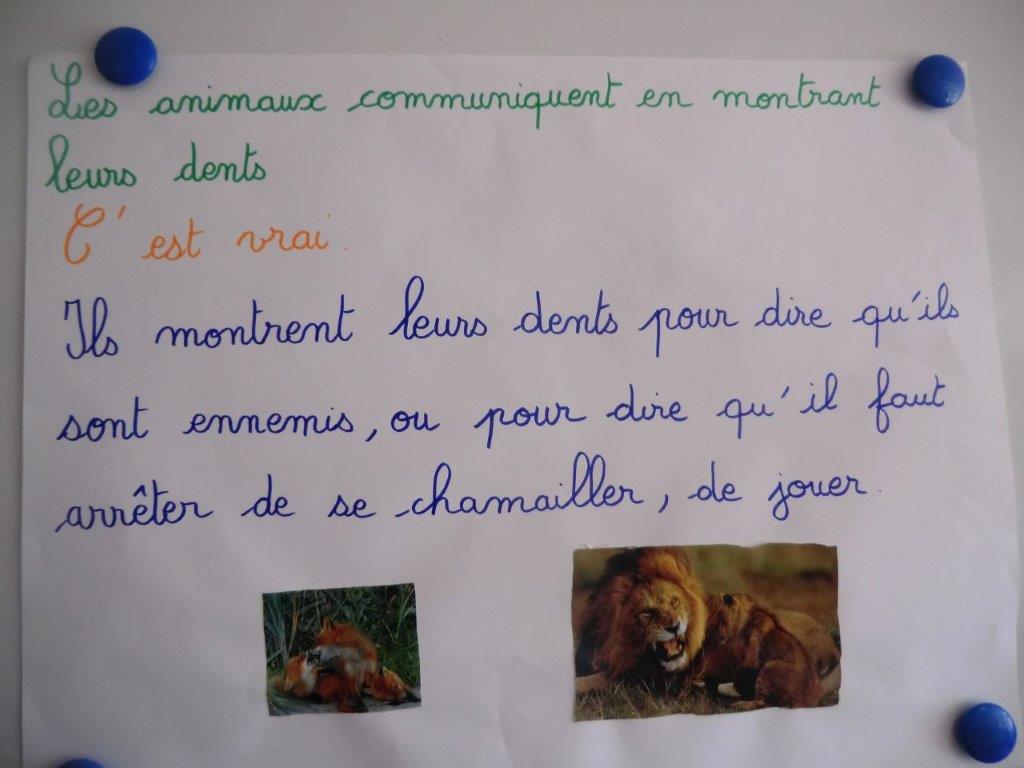 Les animaux communiquent en montrant
leurs dents
C'est vrai.
Ils montrent leurs dents pour dire qu'ils
sont ennemis, ou pour dire qu'il faut
arrêter de se chamailler, de jouer.